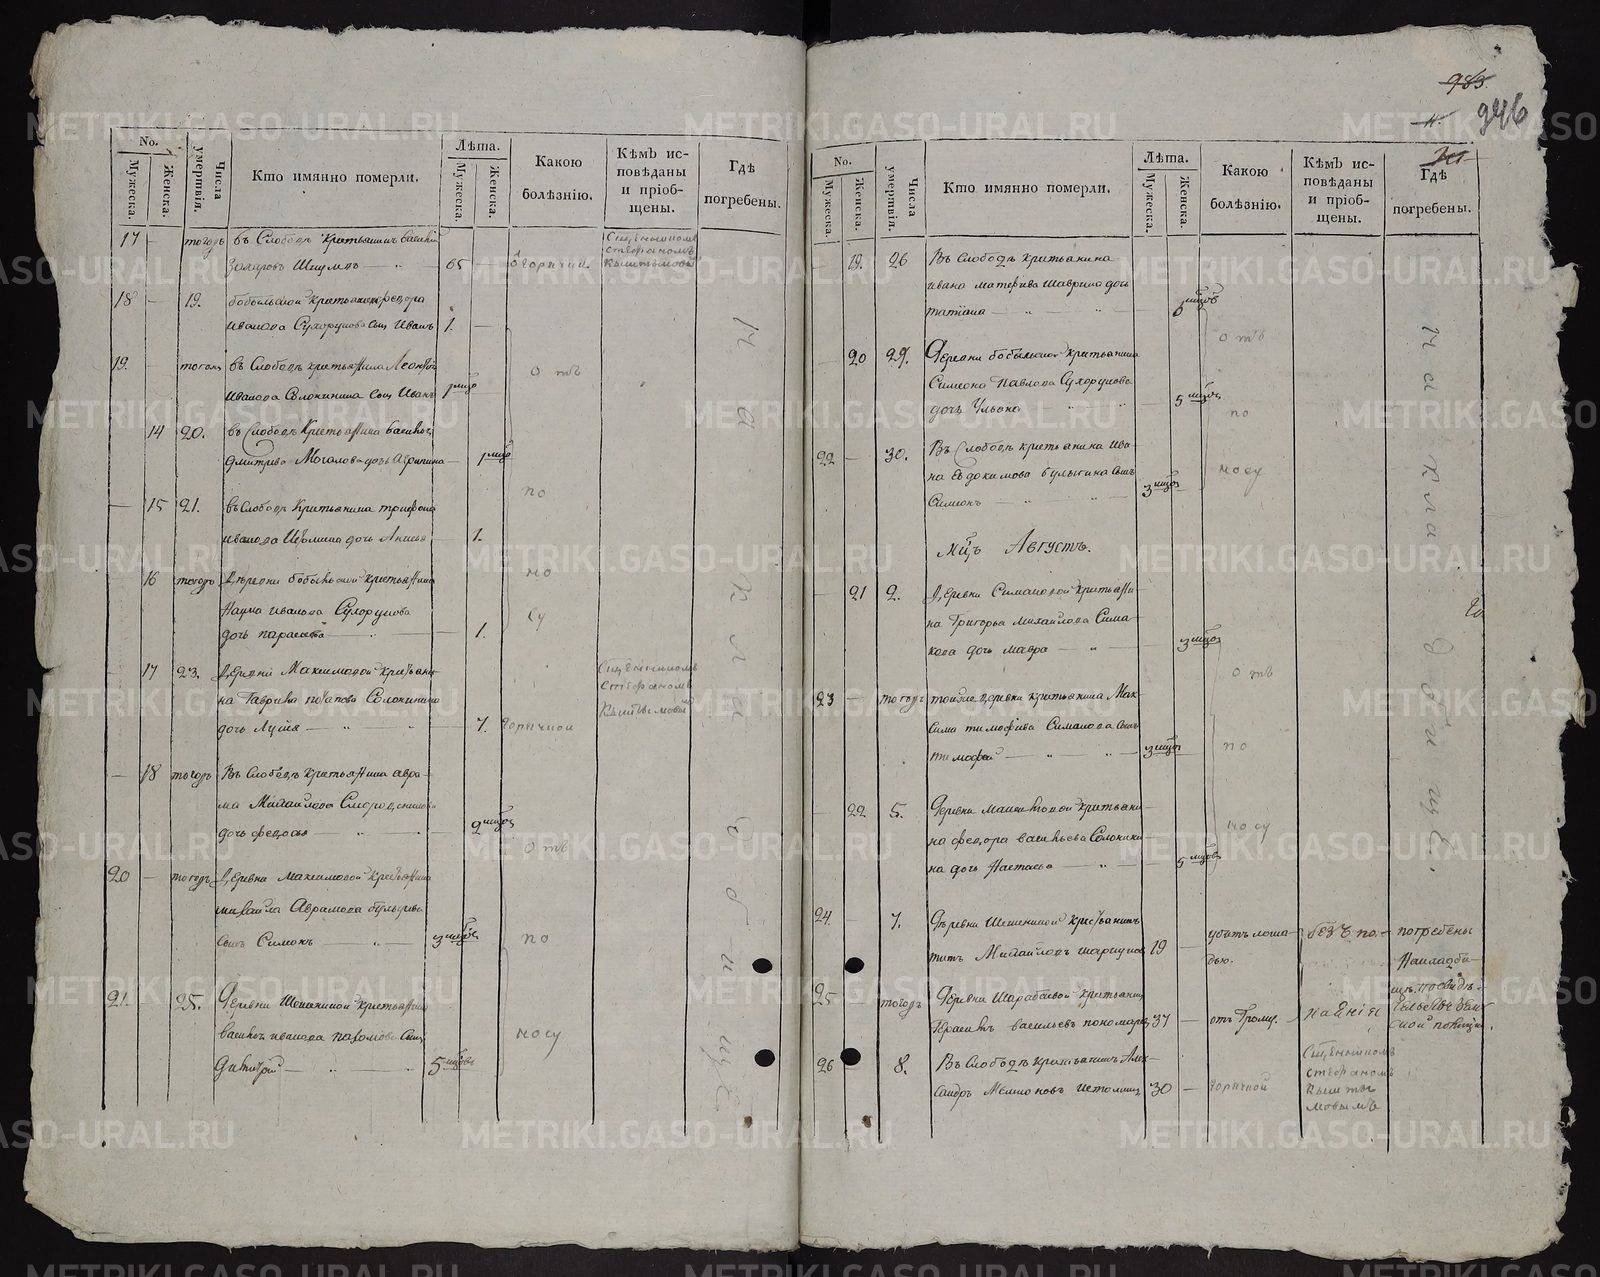 983.
946
No.
Мужеска.
Женска.
Числа умертвія.
Кто имянно померли.
Лѣта.
Мужеска.
Женска.
Какою болѣзнію.
Кѣмъ исповѣданы и пріобщены.
Гдѣ погребены.
17 — тогожъ въ Слободѣ крестьянинъ Василій
Захаровъ 65 — горячки.
Священникомъ
Стефаномъ
Кыштымовымъ
18 — 19. бобыльской крестьянина Федора
Иванова Сухорукова сынъ Иванъ 1. —
19. тогожъ въ Слободѣ крестьянина Леонтія
Иванова Солонинина сынъ Иванъ 1 мцо
отъ
14 20. въ Слободѣ крестьянина Василья
Дмитрева Мочалова дочь Агрипина — 1 мцо
по
— 15 21. въ Слободѣ крестьянина Трифона
Иванова дочь Анисья — 1.
но
16 тогожъ Деревни бобыльской крестьянина
Наума Иванова Сухорукова
дочь Парасковья — 1.
су
17 23. Деревни Максимовой крестьяни-
на Гаврила Потапова Солонинина
дочь Лукія — 7. горячкой
Священникомъ
Стефаномъ
Кыштымовымъ
— 18 тогожъ Въ Слободѣ крестьянина Авра-
ма Михайлова
дочь Федосья — 2 мцовъ
отъ
20 — тогожъ Деревни Максимовой крестьянина
Михайла Аврамова
сынъ Симонъ — 3 мцовъ
по
21. — 25. Деревни Шешениной крестьянина
Василья Иванова Пахомова сынъ
Дмитрій — 5 мцовъ
носу
на кладбищѣ
No.
Мужеска.
Женска.
Числа умертвія.
Кто имянно померли.
Лѣта.
Мужеска.
Женска.
Какою болѣзнію.
Кѣмъ исповѣданы и пріобщены.
Гдѣ погребены.
— 19. 26 Въ Слободѣ крестьянина
Ивана Матфеева Шаврина дочь
Татіана — 6 мцовъ
отъ
20 29. Деревни бобыльской крестьянина
Симеона Павлова Сухорукова
дочь Ульяна — 5 мцовъ
по
22 — 30. Въ Слободѣ крестьянина Ива-
на Евдокимова Булыгина сынъ
Симеонъ — 3 мцовъ
носу
Мцъ Августъ.
— 21 2. Деревни Симановой крестьяни-
на Григорья Михайлова Сима-
кова дочь Мавра — 3 мцовъ
отъ
23 — тогожъ тоиже деревни крестьянина Мак-
сима Тимофеева Симанова сынъ
Тимофей — 3 мцовъ
по
— 22 5. Деревни Максимовой крестьяни-
на Федора Васильева Солонини-
на дочь Настасья — 5 мцовъ
носу
на кладбищѣ.
24 — 7. Деревни Шешениной крестьянинъ
Титъ Михайловъ 19 — убитъ лоша-
дью.
безъ по-
каянія
погребены
на кладби-
щѣ,
25 — тогожъ Деревни Шарабаевой крестьянинъ
Герасимъ Васильевъ Пономаревъ 37 — отъ грому.
26 8. Въ Слободѣ крестьянинъ Алек-
сандръ Истоминъ 30 — горячкой
Священникомъ
Стефаномъ
Кышты-
мовымъ
METRIKI.GASO-URAL.RU